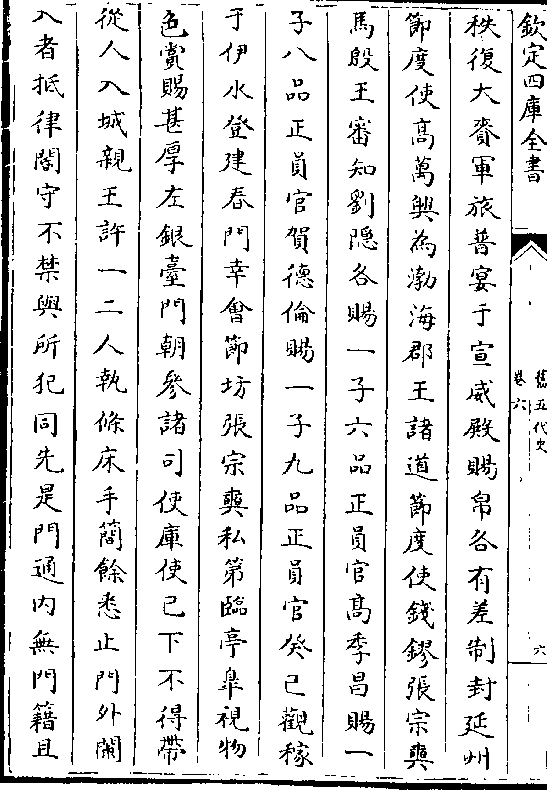 欽定四庫全書
舊五代史
卷六
六
秩復大賚軍旅普宴于宣威殿賜帛各有差制封延州
節度使髙萬興為渤海郡王諸道節度使錢鏐張宗奭
馬殷王審知劉隱各賜一子六品正員官髙季昌賜一
子八品正員官賀德倫賜一子九品正員官癸已觀稼
于伊水登建春門幸會節坊張宗奭私第臨亭臯視物
色賞賜甚厚左銀臺門朝參諸司使庫使已下不得帶
從人入城親王許一二人執條床手簡餘悉止門外闌
入者抵律閽守不禁與所犯同先是門通内無門籍且